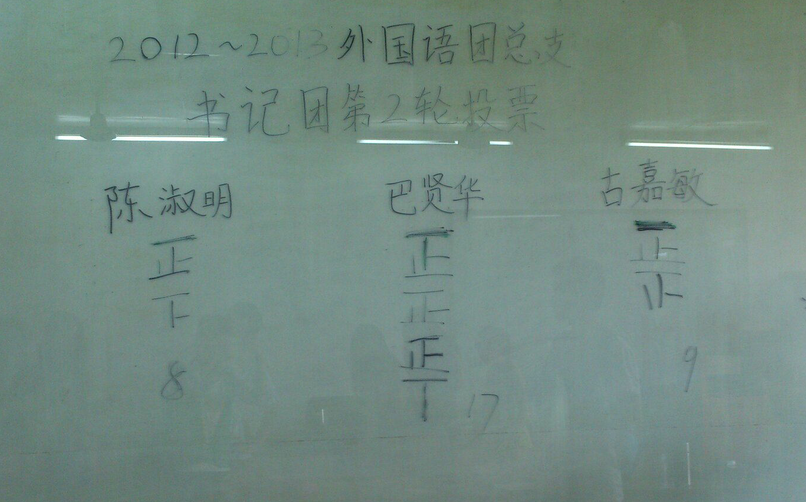 2012~2013外国语团总支
书记团第2轮投票
陈淑明 巴贤华 古嘉敏
正 正 正
下 正 止
正
丅
8 17 9